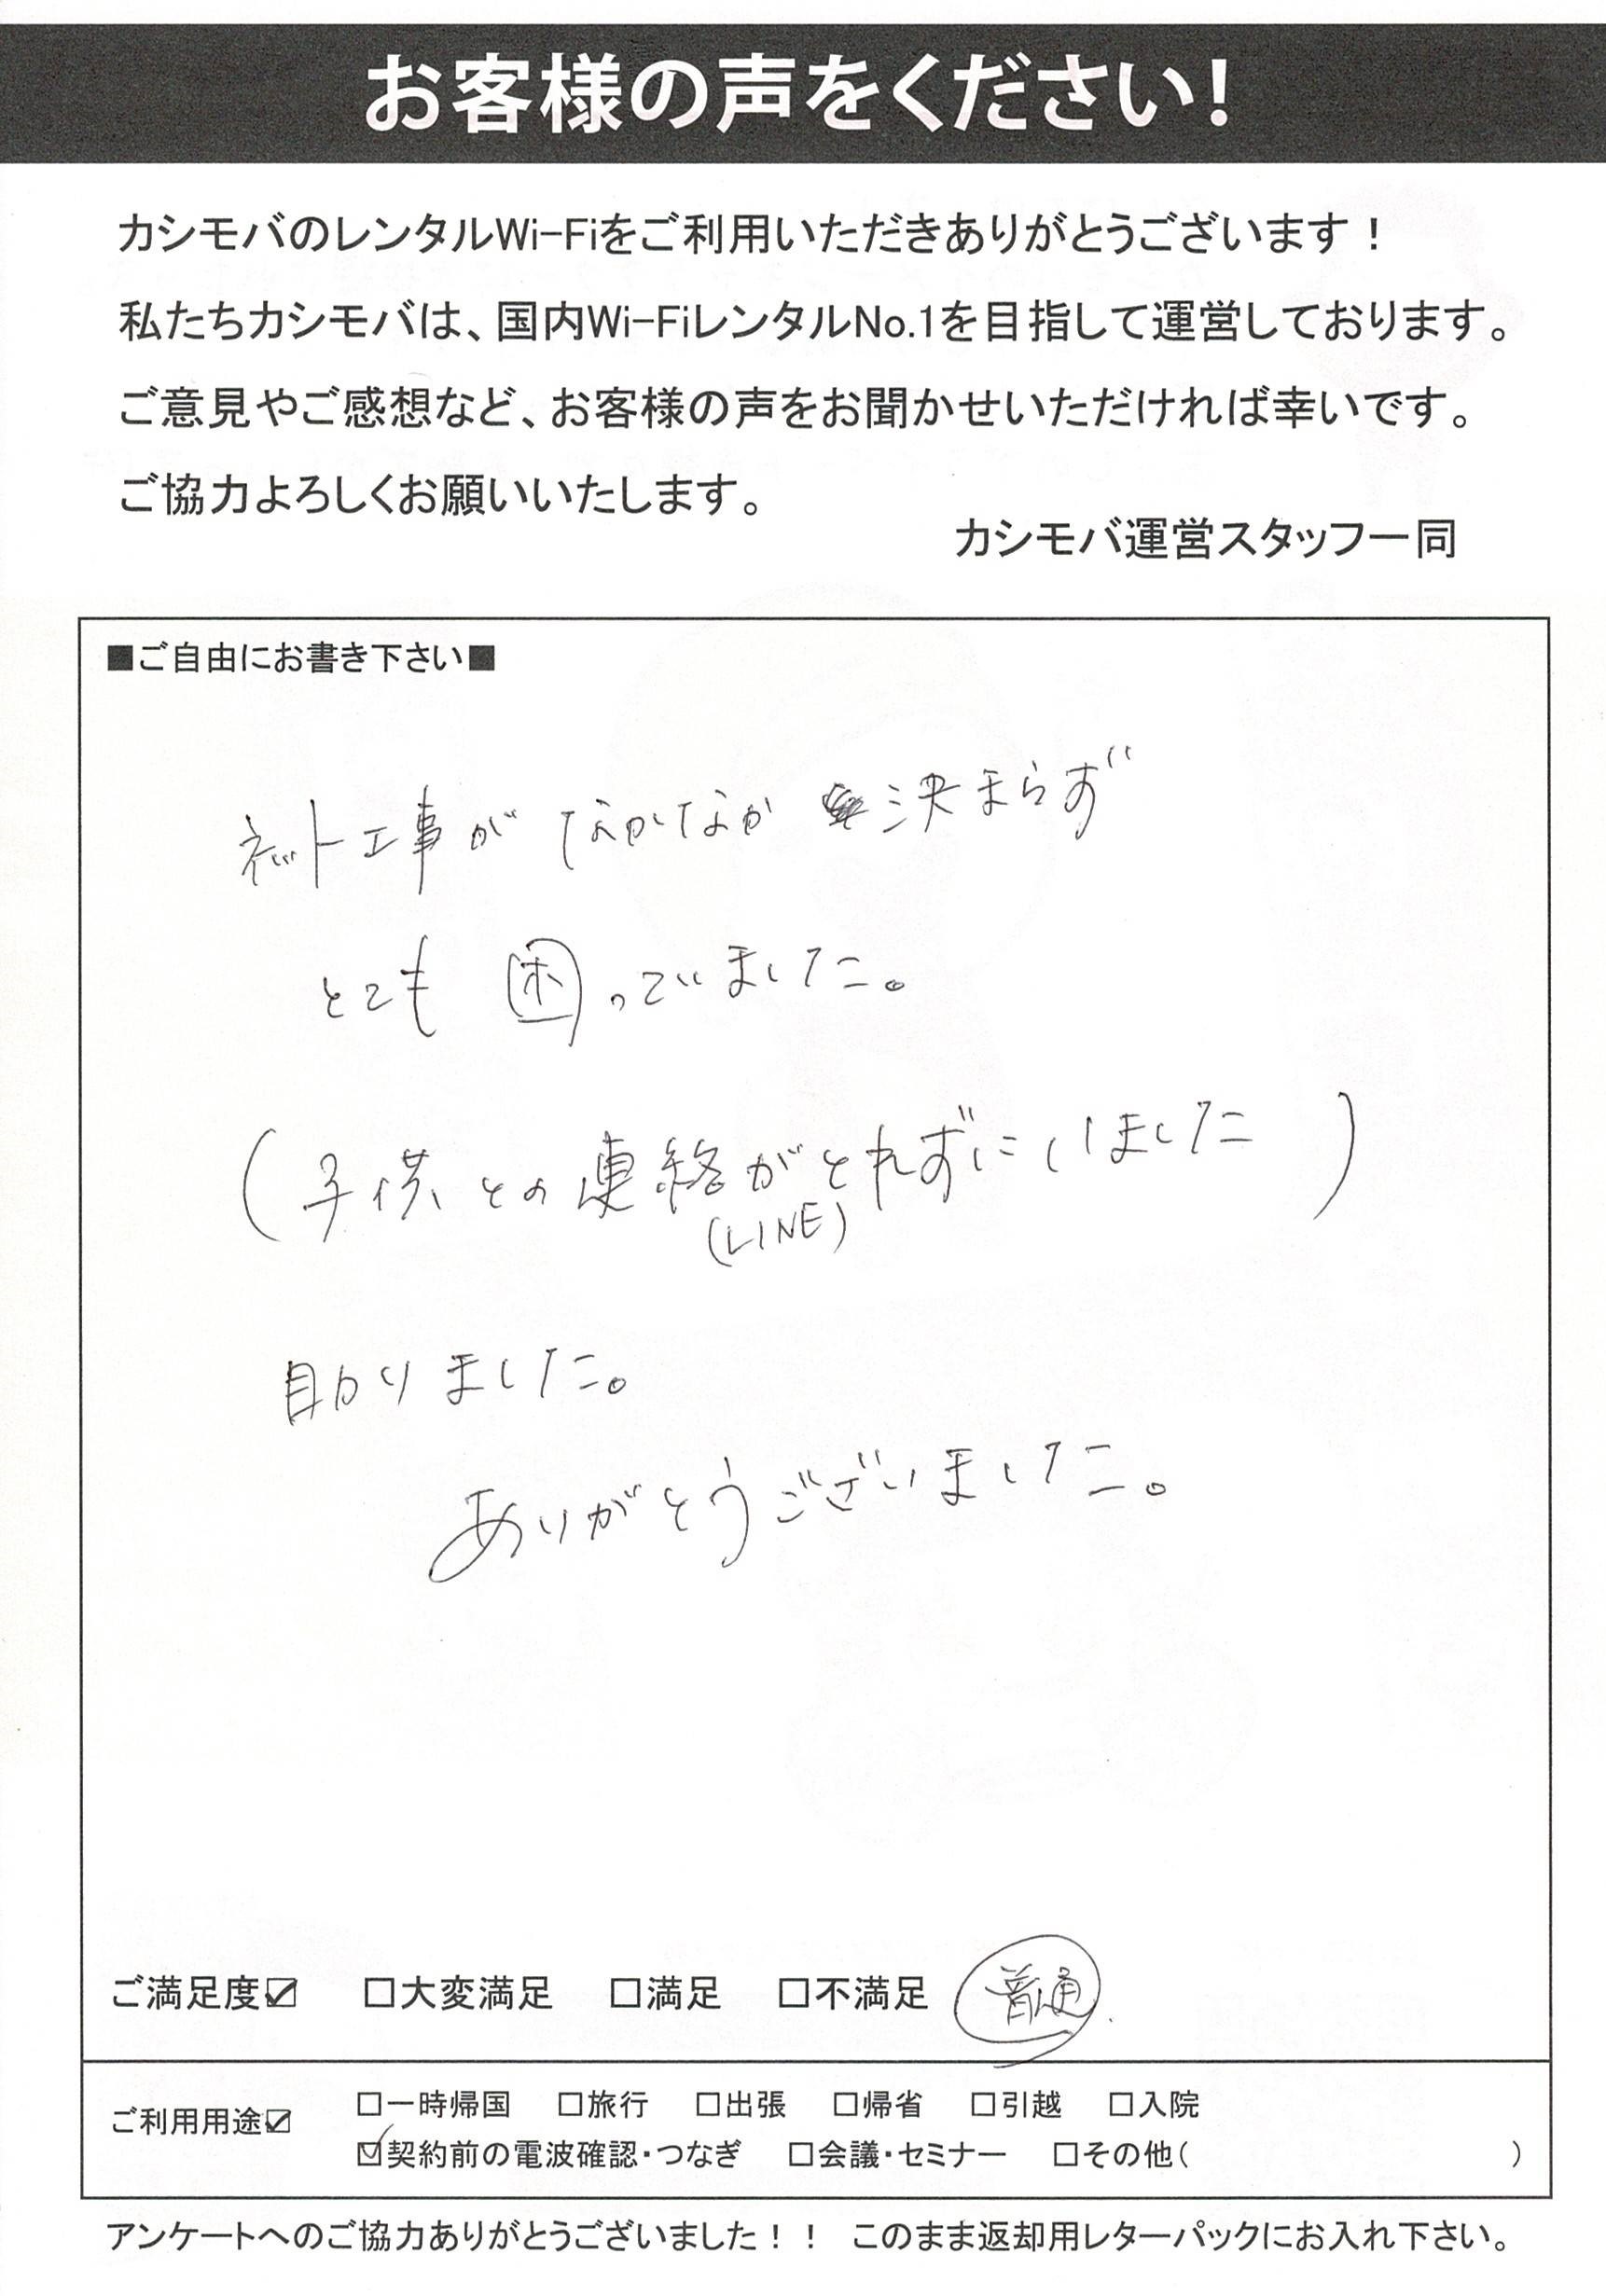 お客様の声をください！
カシモバのレンタルWi-Fiをご利用いただきありがとうございます！
私たちカシモバは、国内Wi-FiレンタルNo.1を目指して運営しております。
ご意見やご感想など、お客様の声をお聞かせいただければ幸いです。
ご協力よろしくお願いいたします。
カシモバ運営スタッフ一同
■ご自由にお書き下さい■
ネット工事がなかなか決まらず
とても困っていました。
（子供との連絡がとれずにいました）
(LINE)
助かりました。
ありがとうございました。
ご満足度☑ □大変満足 □満足 □不満足 普通
ご利用用途☑ □一時帰国 □旅行 □出張 □帰省 □引越 □入院
☑契約前の電波確認・つなぎ □会議・セミナー □その他( )
アンケートへのご協力ありがとうございました！！ このまま返却用レターパックにお入れ下さい。